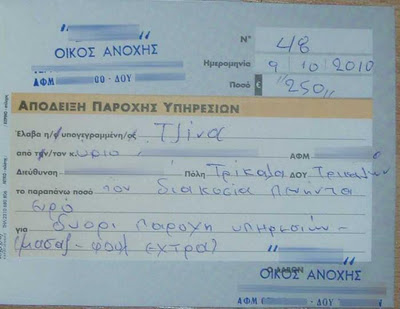 ΟΙΚΟΣ ΑΝΟΧΗΣ
ΑΦΜ 00 - ΔΟΥ
Νº 48
Ημερομηνία 9 10 2010
Ποσό € "250"
ΑΠΟΔΕΙΞΗ ΠΑΡΟΧΗΣ ΥΠΗΡΕΣΙΩΝ
Έλαβα η/ο υπογεγραμμένη/ος Τζίνα
από την/τον κύριο ΑΦΜ
Διεύθυνση Πόλη Τρίκαλα ΔΟΥ Τρικάλων
το παραπάνω ποσό των διακοσια πενήντα
ευρώ
για παροχη υπηρεσιών -
(μασαζ - φουλ εχτρα)
Ο ΛΑΒΩΝ
ΟΙΚΟΣ ΑΝΟΧΗΣ
ΑΦΜ 0 - ΔΟΥ